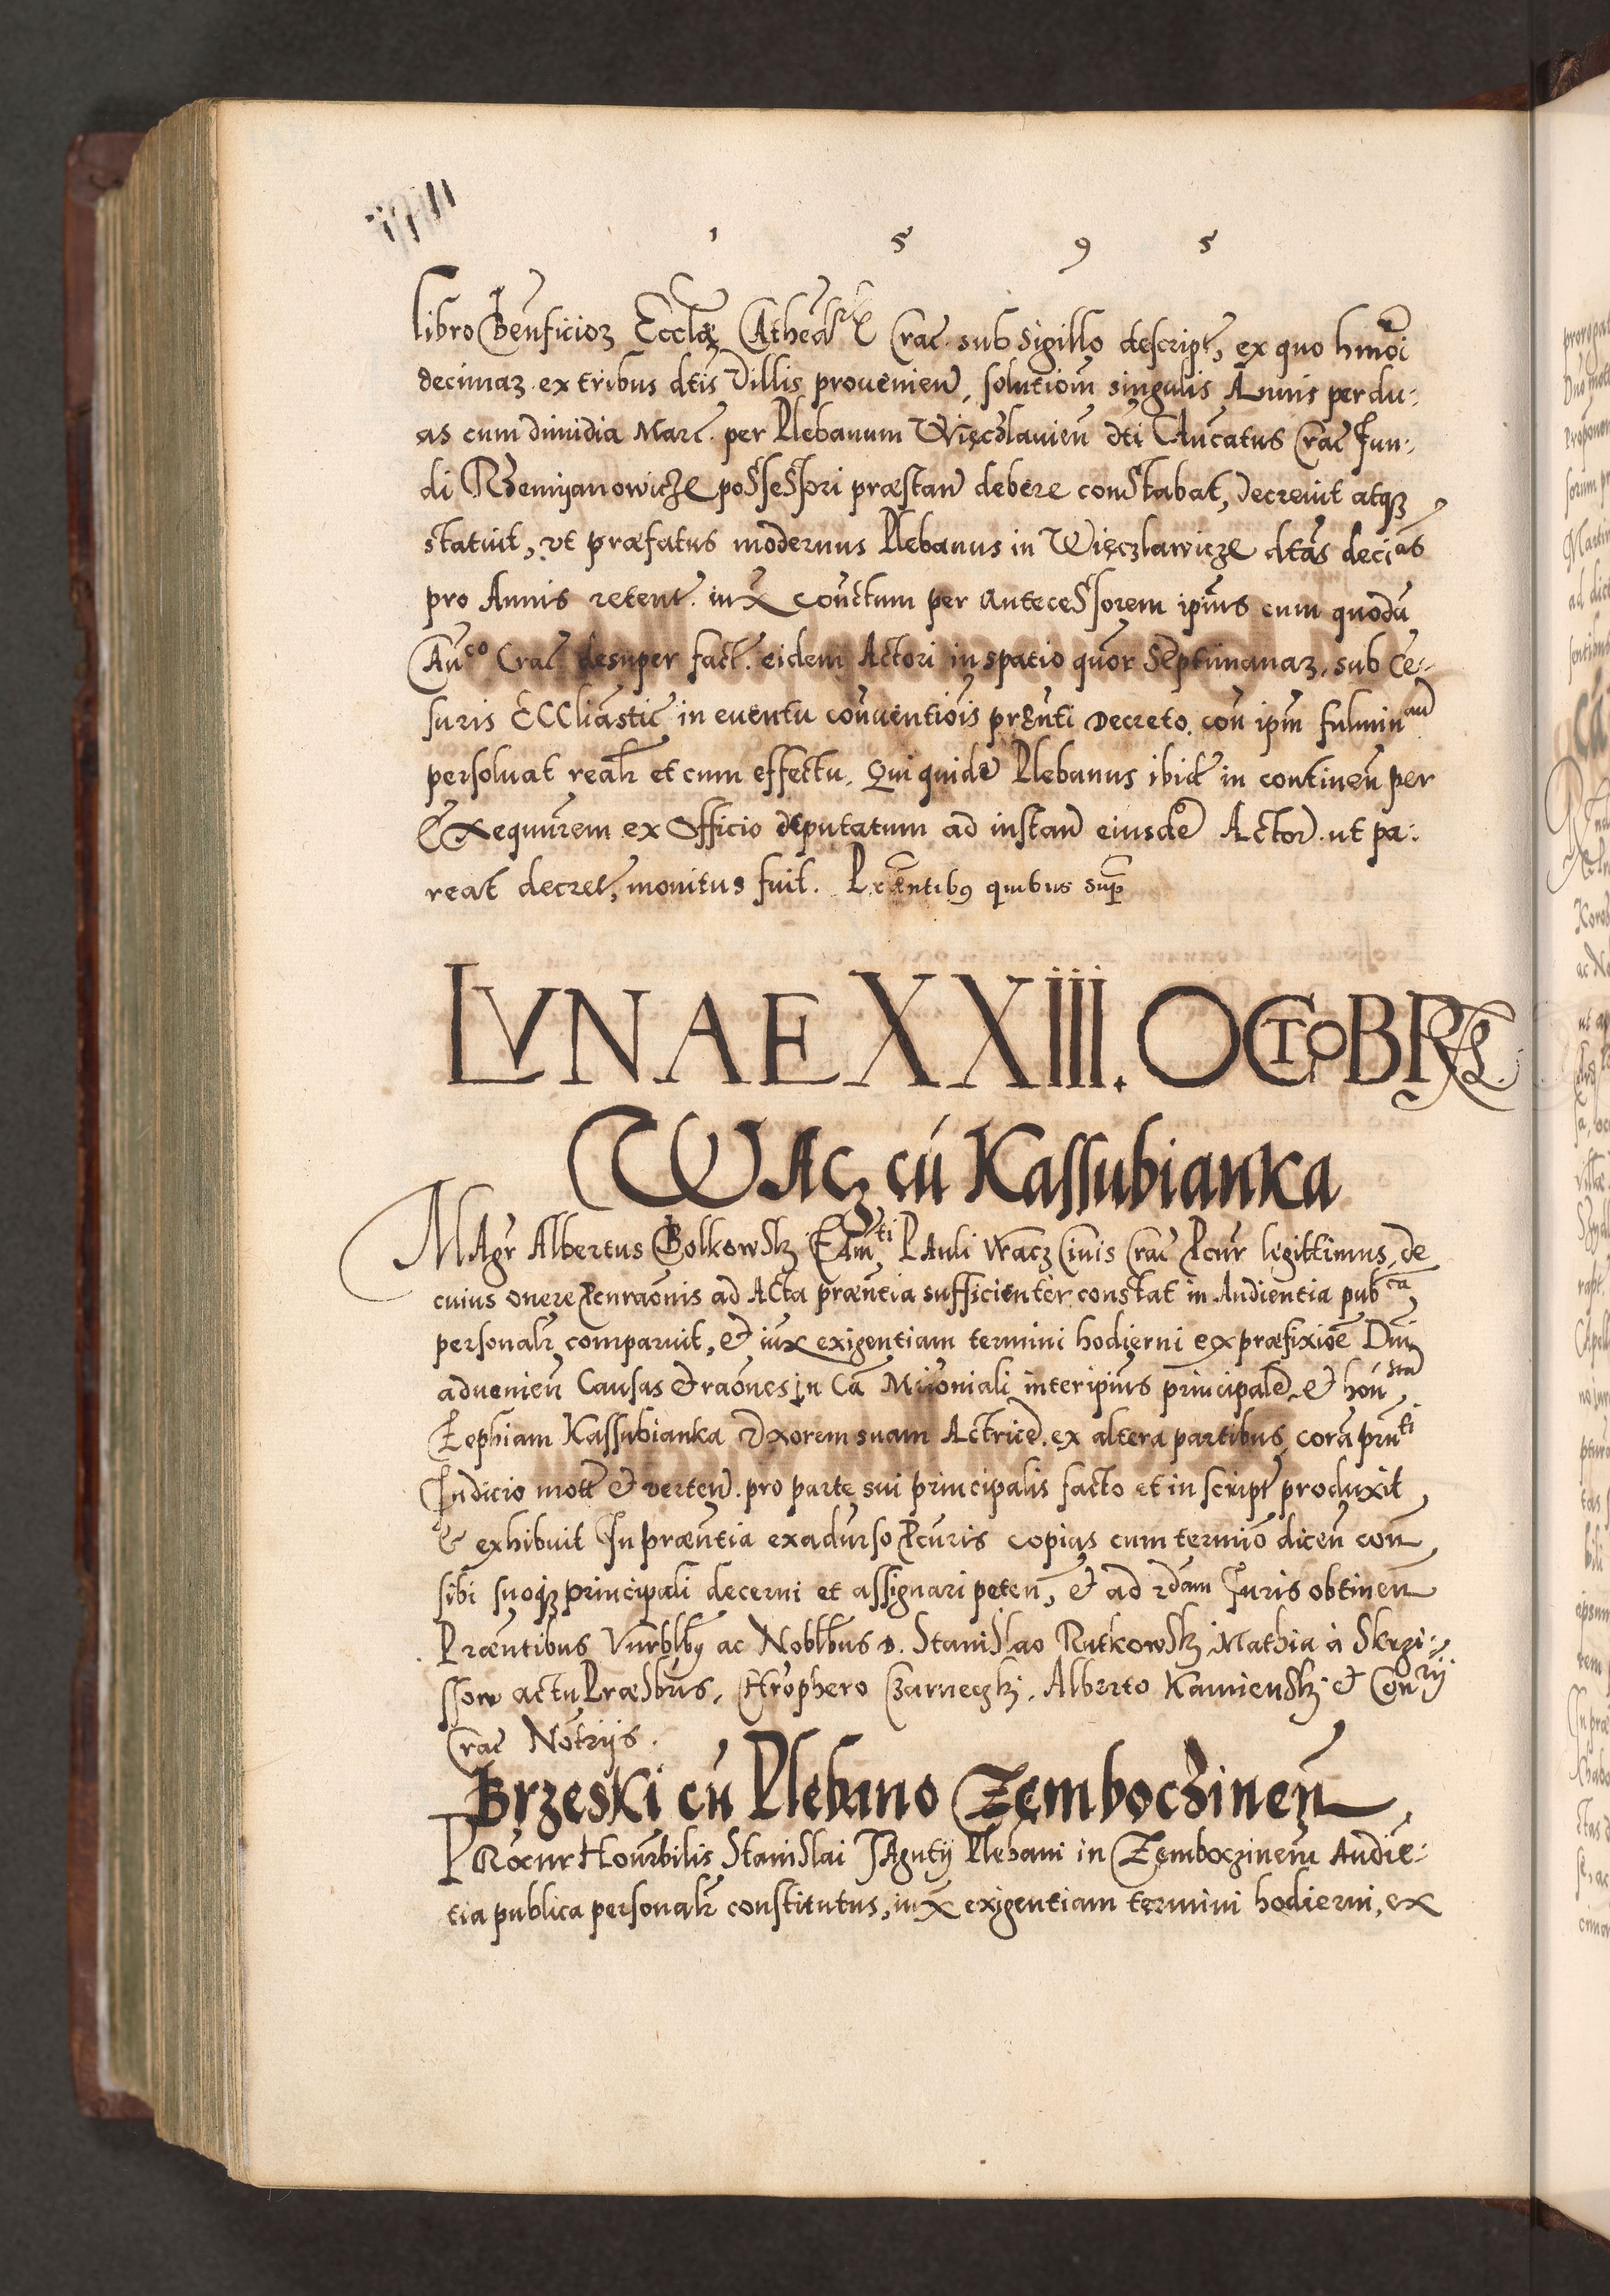 1 5 9 5
libro Benficioꝝ Eccłæ Cathedr Crac. sub sigillo descript, ex quo hmoi
decimaꝝ ex tribus dtis Villis prouenien, solutiom singulis Annis per du⸗
as cum dimidia Marc. per Plebanum Więczlauien dti Cancatus Crac Fun⸗
di Rzemijanowicze possessori præstan debere constabat, decreuit atqꝫ
statuit, vt præfatus modernus Plebanus in Więczlawicze dtas decias
pro Annis retent. iux conctum per antecessorem ipius cum quodā
Canco Crac desuper fact. eidem Actori in spatio quor Septimanaꝝ, sub Ce⸗
suris Eccliastic in euentu conuentiois prænti Decreto con ipm fulminan
persoluat realr et cum effectu. Qui quidē Plebanus ibid in continen per
Exequurem ex Officio deputatum ad instan eiusdē Actor. ut pa⸗
reat decret, monitus fuit. Præntibꝯ quibus sup
LVNAE XXIII. OCTOBRIS
Wacz cū Kassubianka
Magr Albertus Golkowsky Famti Pauli Wacz Ciuis Crac Pcur legittimus, de
cuius onere Pcuraonis ad Acta præntia sufficienter constat in Audientia pubca
personalr comparuit, & iux exigentiam termini hodierni ex præfixioe Dni
aduenien Causas & raones in Ca Mrioniali inter ipius principalē & honstam
Zophiam Kassubianka Vxorem suam Actricē ex altera partibus, corā prnti
Iudicio mott & verten. pro parte sui principalis facto et in script produxit
& exhibuit In præntia ex aduerso Pcuris copias cum termio dicen con
sibi suoqꝫ principali decerni et assignari peten, & ad rdam Iuris obtinen
Præntibus Vnrblbꝯ ac Noblbus D. Stanislao Rutkowsky, Mathia à Skrzi⸗
ssow actu Præsbris, Chrophero Czarneczky, Alberto Kamiensky & Conrij
Crac Notrijs.
Brzeski cū Plebano Zemboczinen
Procur Honrbilis Stanislai Jagntij Plebani in Zemboczinenm Audiē⸗
tia publica personalr constitutus, iux exigentiam termini hodierni, ex